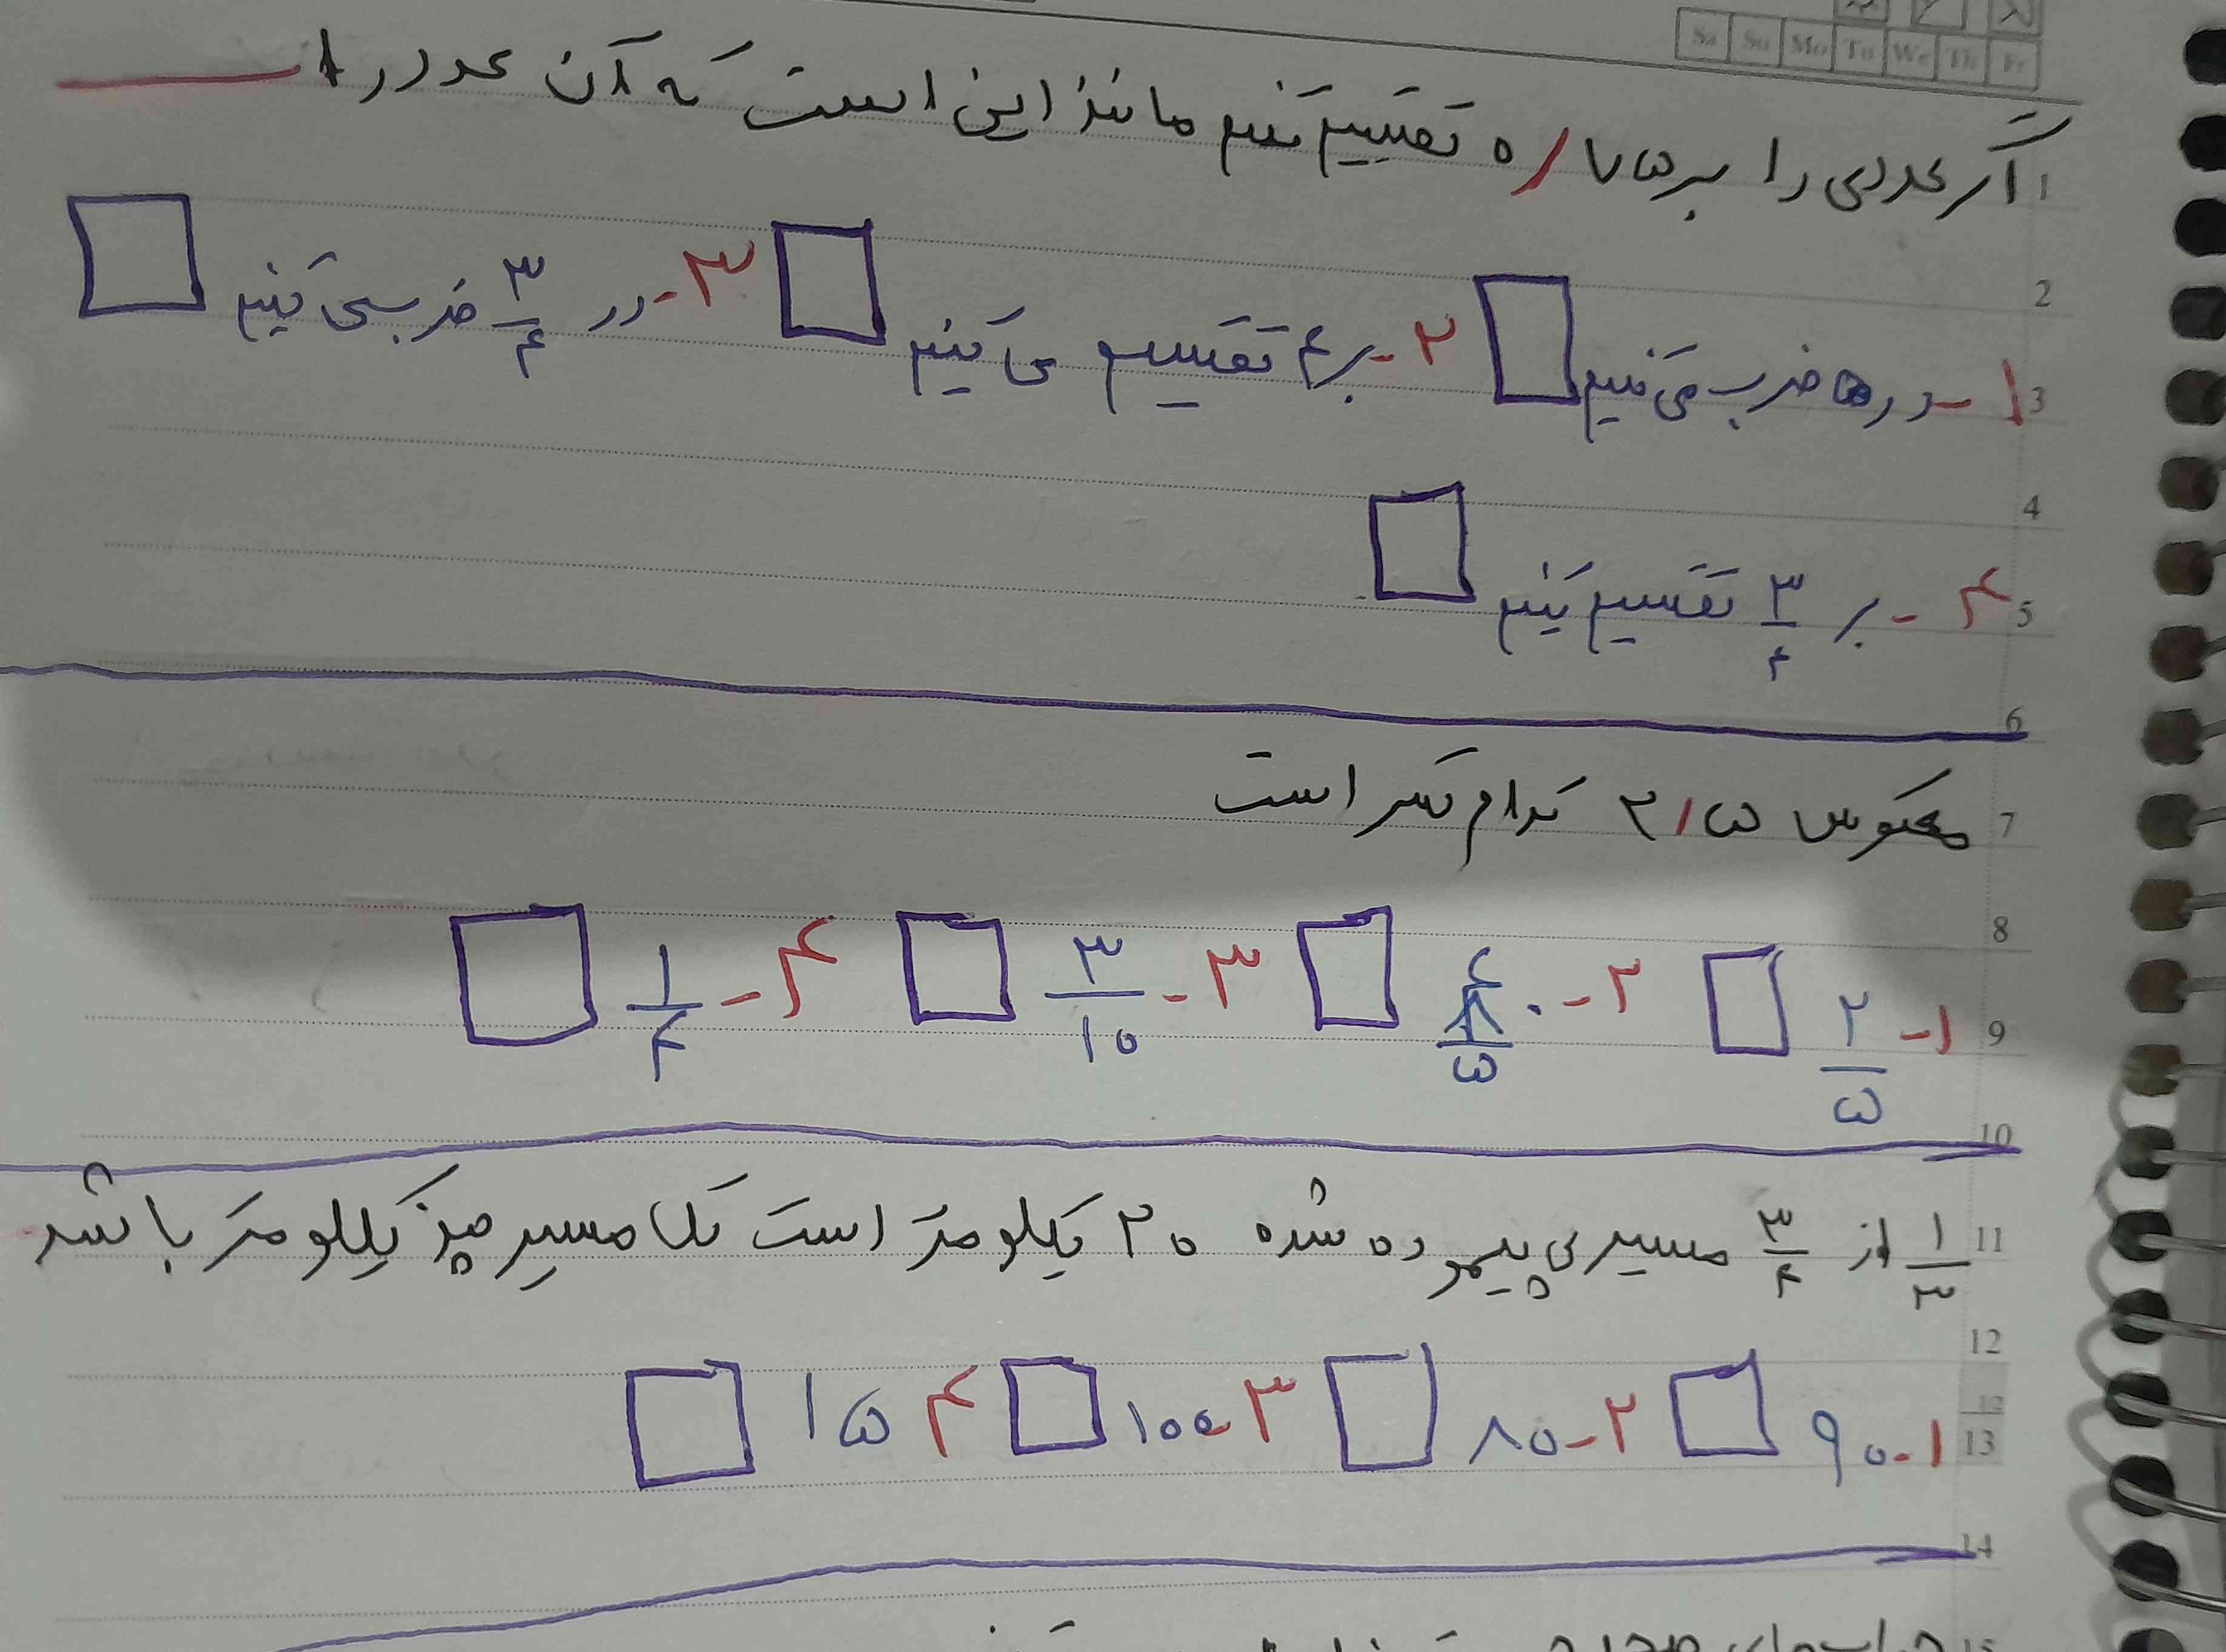 Sa Su Mo Tu We Th Fr
اگر عددی را بر ۰/۷۵ تقسیم کنیم مانند این است که آن عدد را
۱- در ۵ ضرب می کنیم ۲- بر ۴ تقسیم می کنیم ۳- در ۳/۴ ضرب می کنیم
۴- بر ۳/۴ تقسیم کنیم
معکوس ۲/۵ کدام کسر است
۱- ۲/۵ ۲- ۴/۵ ۳- ۳/۱۰ ۴- ۱/۴
۱/۳ از ۳/۴ مسیری پیموده شده ۲۰ کیلومتر است کل مسیر چند کیلومتر باشد
۱- ۹۰ ۲- ۸۰ ۳- ۱۰۰ ۴ ۱۵